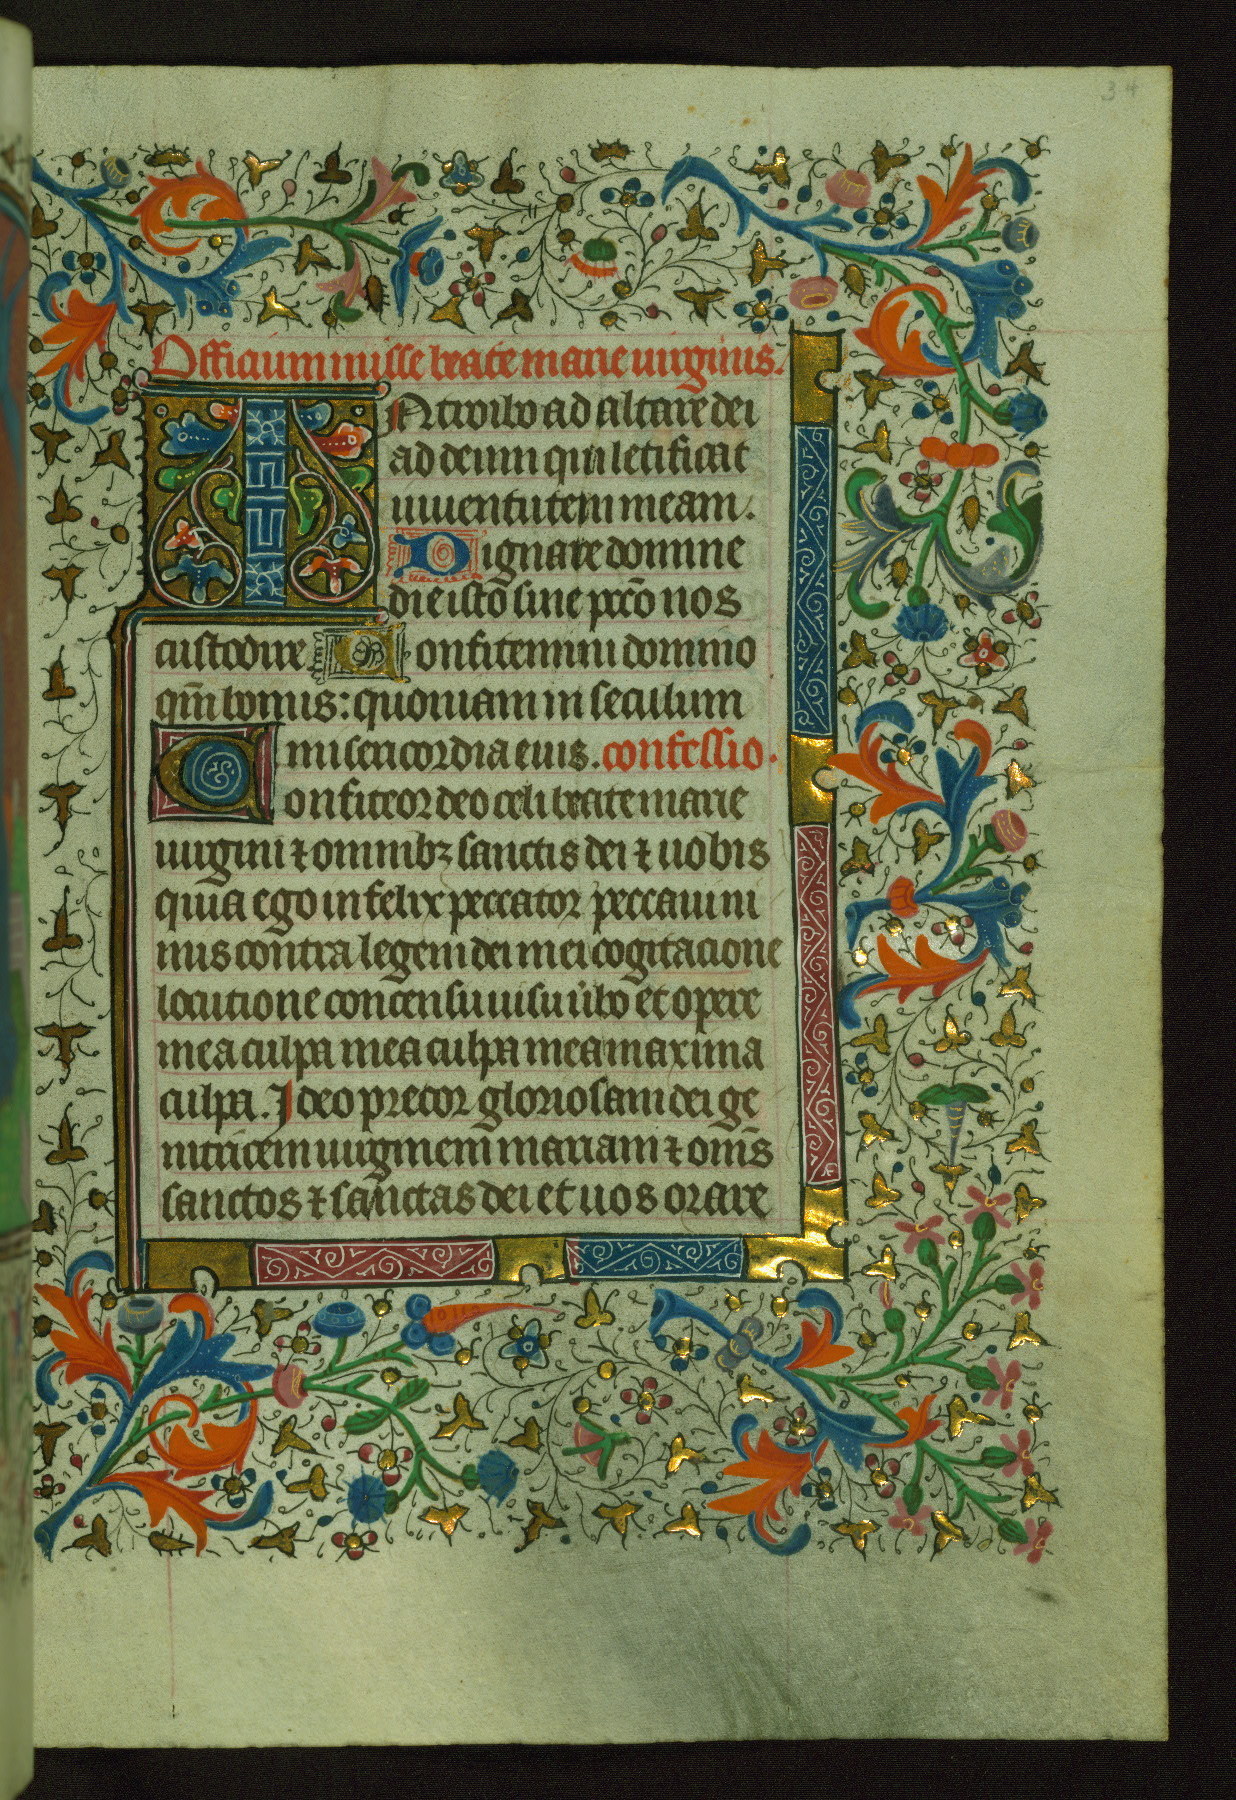 34
Officium misse beate marie uirginis.
INtroibo ad altare dei
ad deum qui letificat
iuuentutem meam.
Dignare domine
die isto sine pcc̄o nos
custodire Confitemini domino
qm̄ bonus: quoniam in seculum
misericordia eius. confessio.
Confiteor deo celi beate marie
uirgini ⁊ omnibꝫ sanctis dei ⁊ uobis
quia ego infelix peccator peccaui ni
mis contra legem dei mei cogitacione
locutione concensu uisu u̇bo et opere
mea culpa mea culpa mea maxima
culpa. Ideo precor gloriosam dei ge
nitricem uirginem mariam ⁊ om̄s
sanctos ⁊ sanctas dei et uos orare